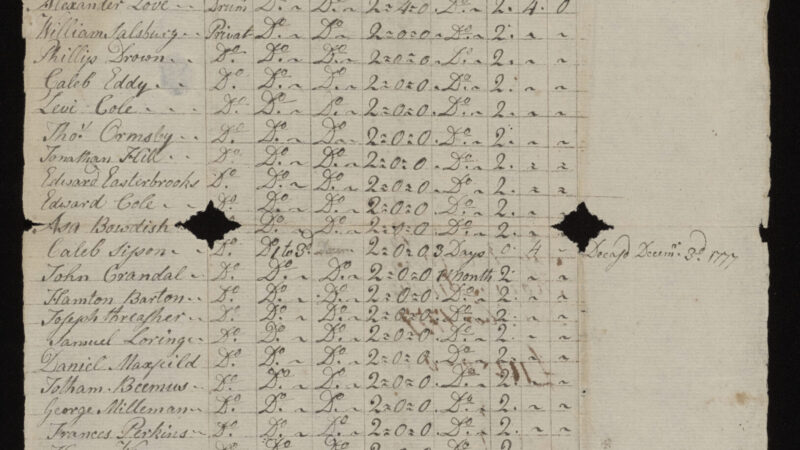 Alexander Love Drum Do. Do. 2=4=0 Do. 2. 4. 0
William Salsburg Privat Do. Do. 2=0=0 Do. 2. ~ ~
Phillip Drown Do. Do. Do. 2=0=0 Do. 2. ~ ~
Caleb Eddy Do. Do. Do. 2=0=0 Do. 2. ~ ~
Levi Cole Do. Do. Do. 2=0=0 Do. 2. ~ ~
Thos. Ormsby Do. Do. Do. 2=0=0 Do. 2. ~ ~
Jonathan Hill Do. Do. Do. 2=0=0 Do. 2. ~ ~
Edward Easterbrooks Do. Do. Do. 2=0=0 Do. 2. ~ ~
Edward Cole Do. Do. Do. 2=0=0 Do. 2. ~ ~
Asa Bowdish Do. Do. 2=0=0 Do. 2. ~ ~
Caleb Sipson Do. 1 to 3d 2=0=0 3 Days 0 4 ~ Decasd Decemr. 3d 1777
John Crandal Do. Do. Do. 2=0=0 1 Month 2. ~ ~
Hamton Barton Do. Do. Do. 2=0=0 Do. 2. ~ ~
Joseph threasher Do. Do. Do. 2=0=0 Do. 2. ~ ~
Samuel Loring Do. Do. Do. 2=0=0 Do. 2. ~ ~
Daniel Maxfild Do. Do. Do. 2=0=0 Do. 2. ~ ~
Jotham Beemus Do. Do. Do. 2=0=0 Do. 2. ~ ~
George Milleman Do. Do. Do. 2=0=0 Do. 2. ~ ~
Frances Perkins Do. Do. Do. 2=0=0 Do. 2. ~ ~